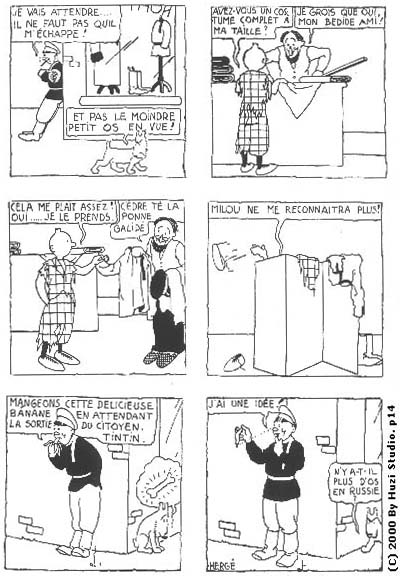 JE VAIS ATTENDRE....
IL NE FAUT PAS QU'IL
M'ÉCHAPPE!
ET PAS LE MOINDRE
PETIT OS EN VUE!
AVEZ-VOUS UN COS
TUME COMPLET À
MA TAILLE?
JE GROIS QUE OUI,
MON BEDIDE AMI!
CELA ME PLAIT ASSEZ!
OUI ..... JE LE PRENDS.
C'ÈDRE TÉ LA
PONNE
GALIDÉ!
MILOU NE ME RECONNAITRA PLUS!
MANGEONS CETTE DELICIEUSE
BANANE EN ATTENDANT
LA SORTIE DU CITOYEN
TINTIN.
J'AI UNE IDÉE!
N'Y A-T-IL
PLUS D'OS
EN RUSSIE
HERGÉ
(C) 2000 By Huzi Studio. p14